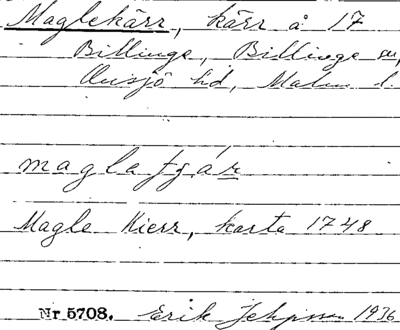 Maglekärr, kärr å 17
Billinge, Billinge sn,
Onsjö hd, Malm. l.
maglatɟár
Magle Kierr, karta 1748
Nr 5708. Erik Jeppsson 1936